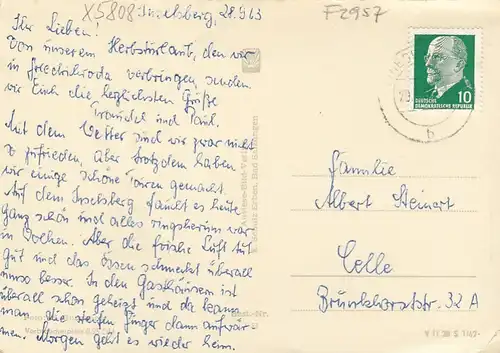 X5808
F2957
Inselsberg, 28.9.63
Ihr Lieben!
Von unserem Herbsturlaub, den wir
in Friedrichroda verbringen, senden
wir Euch die herzlichsten Grüße
Traudel und Paul.
Mit dem Wetter sind wir zwar nicht
so zufrieden, aber trotzdem haben
wir einige schöne Touren gemacht.
Auf dem Inselsberg es heute
ganz schön und alles ringsherum war
in Wolken. Aber die frische Luft tut
gut und das Essen schmeckt überall
umso besser. In den Gasthäusern ist
überall schon geheizt und da kann
man die steifen Finger dann aufwär-
men. Morgen geht es wieder heim.
10
DEUTSCHE
DEMOKRATISCHE REPUBLIK
b
Familie
Albert Steinert
Celle
Brunkhorststr. 32 A
Best.-Nr.